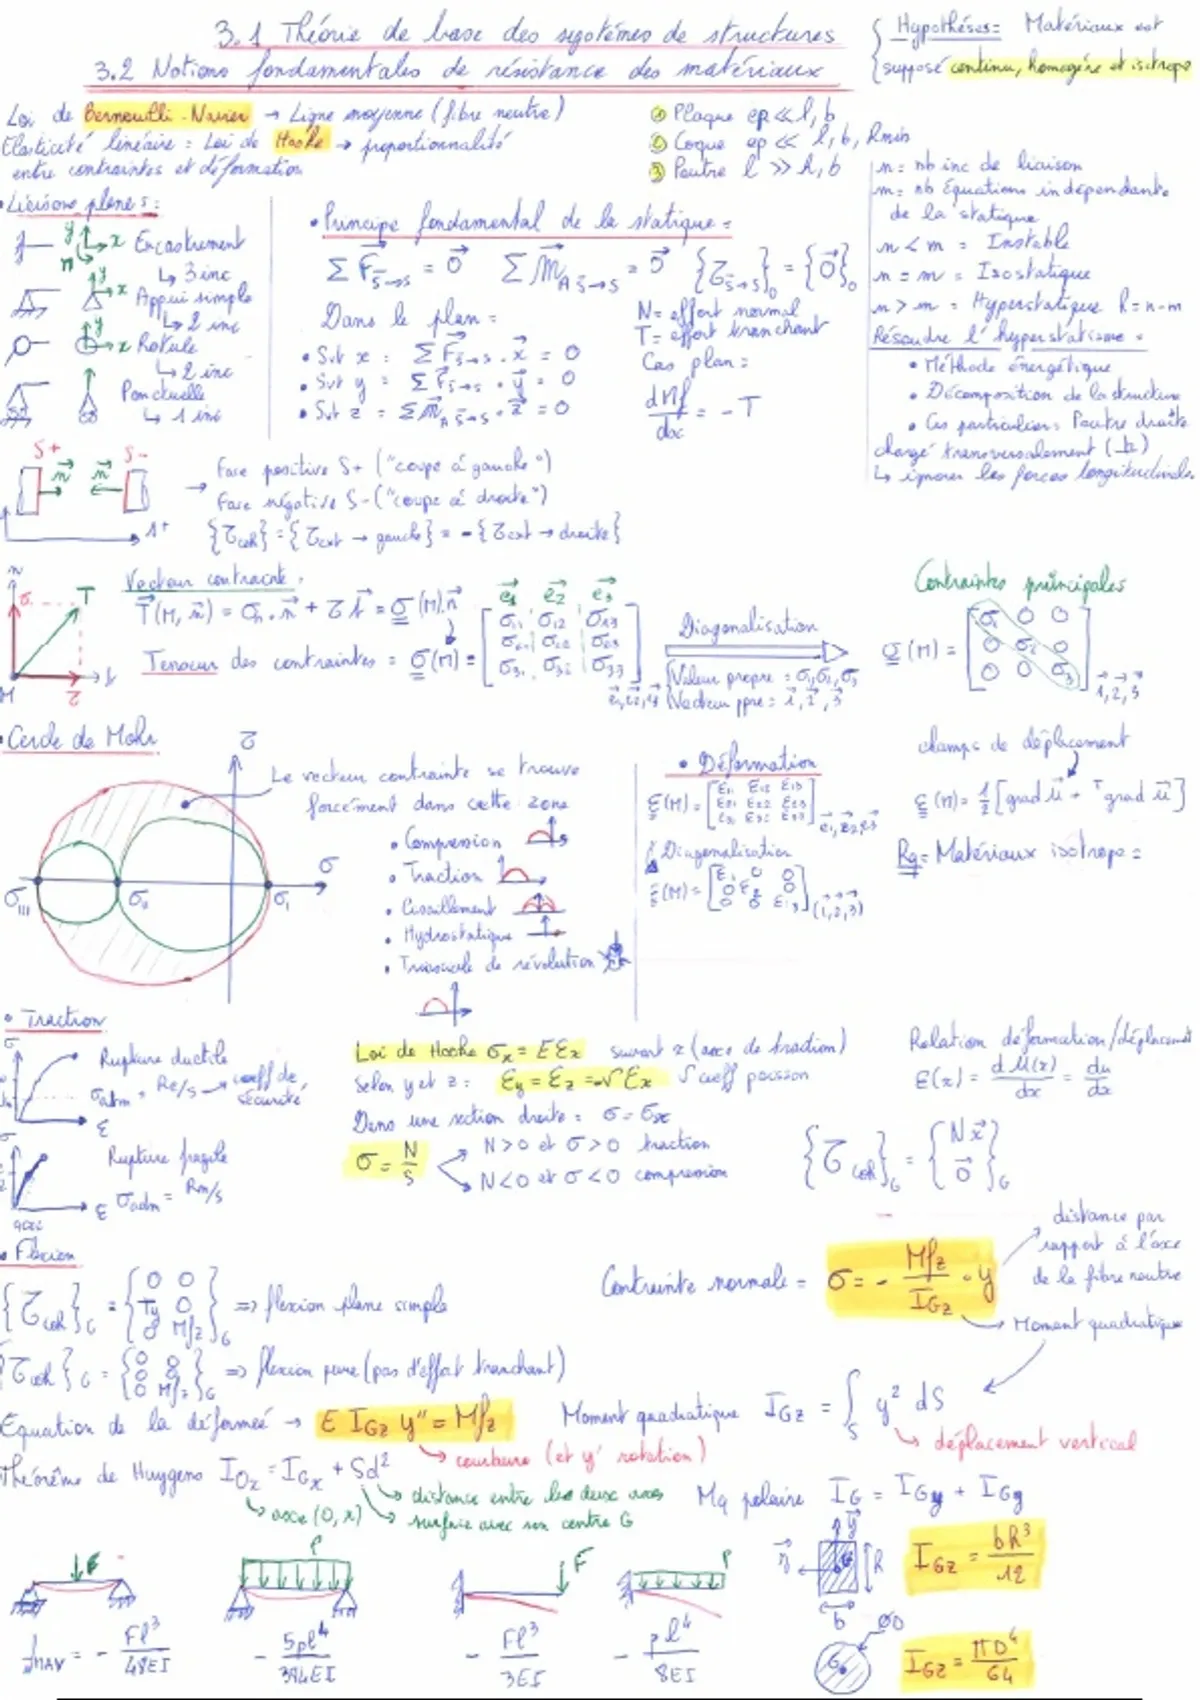 3.1 Théorie de base des systèmes de structures
3.2 Notions fondamentales de résistance des matériaux
Hypothèses= Matériaux est
supposé continu, homogène et isotrope
Loi de Bernoulli-Navier → Ligne moyenne (fibre neutre)
Elasticité linéaire = Loi de Hooke → proportionnalité
entre contraintes et déformation
① Plaque ep << l, b
② Coque ep << l, b, Rmin
③ Poutre l >> h, b
n = nb inc de liaison
m = nb Equations indépendante
de la statique
n < m = Instable
n = m = Isostatique
n > m = Hyperstatique h = n-m
Résoudre l'hyperstatisme =
• Méthode énergétique
• Décomposition de la structure
• Cas particuliers Poutre droite
chargé transversalement
↳ ignorer les forces longitudinales
• Liaisons planes :
y x Encastrement
↳ 3 inc
y x Appui simple
↳ 2 inc
y x Rotule
↳ 2 inc
Ponctuelle
↳ 1 inc
• Principe fondamental de la statique =
Σ F s̄→s = 0 Σ M A s̄→s = 0 {τ s̄→s}₀ = {0}₀
Dans le plan =
• Sur x : Σ F s̄→s . x = 0
• Sur y = Σ F s̄→s . y = 0
• Sur z = Σ M A s̄→s . z = 0
N = effort normal
T = effort tranchant
Cas plan =
dMf/dx = - T
S+ n n S-
→ Face positive S+ ("coupe à gauche")
Face négative S- ("coupe à droite")
{τcoh} = {τext → gauche} = - {τext → droite}
Vecteur contrainte
T(M, n) = σn . n + τ t = σ(M).n
Tenseur des contraintes = σ(M) =
e1 e2 e3
σ11 σ12 σ13
σ21 σ22 σ23
σ31 σ32 σ33
Diagonalisation
Valeur propre = σ1, σ2, σ3
Vecteur ppre = 1, 2, 3
Contraintes principales
σ(M) =
σ1 0 0
0 σ2 0
0 0 σ3
1, 2, 3
• Cercle de Mohr
τ
Le vecteur contrainte se trouve
forcément dans cette zone
σ
σIII σII σI
• Compression
• Traction
• Cisaillement
• Hydrostatique
• de révolution
• Déformation
ε(M) =
ε11 ε12 ε13
ε21 ε22 ε23
ε31 ε32 ε33
e1, e2, e3
Diagonalisation
ε(M) =
ε1 0 0
0 ε2 0
0 0 ε3
(1, 2, 3)
champs de déplacement
ε(M) = 1/2 [grad u + ᵀgrad u]
Rq = Matériaux isotrope =
• Traction
σ
Rupture ductile
σadm = Re/s → coeff de
sécurité
ε
Rupture fragile
σadm = Rm/s
ε
Loi de Hooke σx = E εx suivant x (axe de traction)
Selon y et z : εy = εz = -ν εx ν coeff poisson
Dans une section droite : σ = σx
σ = N/S
N > 0 et σ > 0 traction
N < 0 et σ < 0 compression
Relation déformation/déplacement
ε(x) = dU(x)/dx = du/dx
{τcoh}G = {N x 0}G
• Flexion
{τcoh}G = {0 0 Ty 0 0 Mfz}G ⇒ flexion plane simple
{τcoh}G = {0 0 0 0 0 Mfz}G ⇒ flexion pure (pas d'effort tranchant)
Contrainte normale = σ = - Mfz/IGz . y
distance par
rapport à l'axe
de la fibre neutre
Moment quadratique
Equation de la déformée → E IGz y'' = Mfz
↳ courbure (et y' rotation)
Moment quadratique IGz = ∫S y² dS
↳ déplacement vertical
Théorème de Huygens IOx = IGx + Sd²
↳ axe (0, x)
↳ distance entre les deux axes
↳ surface avec son centre G
Mq polaire IG = IGy + IGz
F
p
F
p
fmax = - Fl³/48EI
- 5pl⁴/384EI
- Fl³/3EI
- pl⁴/8EI
y G h b
IGz = bh³/12
∅D
G
IGz = πD⁴/64